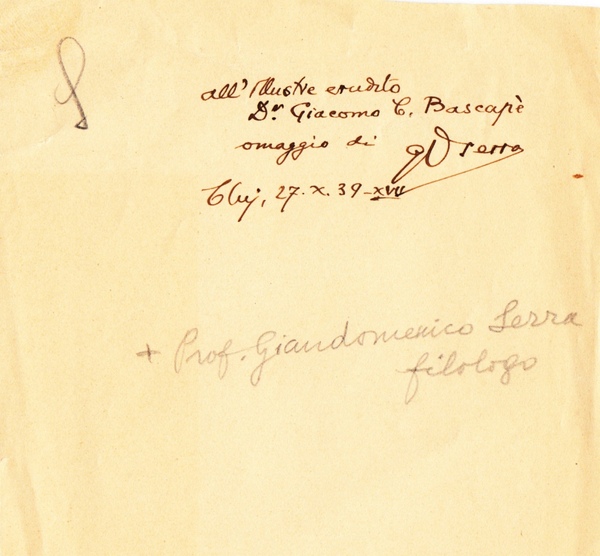 all'Illustre erudito
Dr. Giacomo C. Bascapè
omaggio di GD Serra
Cluj, 27. X. 39 - XVII
+ Prof. Giandomenico Serra
filologo